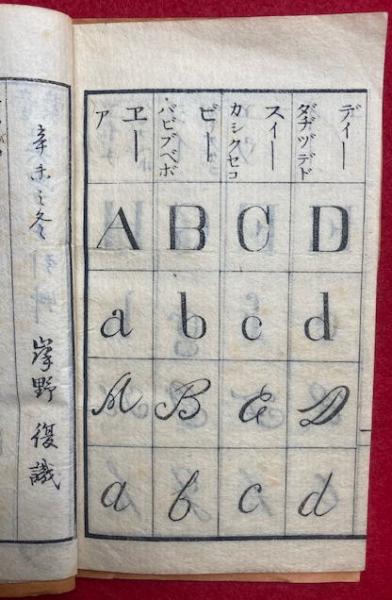 辛未之冬
岸野 復識
ヱー
ア
ビー
バビブベボ
スイー
カシクセコ
デイー
ダヂヅデド
A B C D
a b c d
A B C D
a b c d